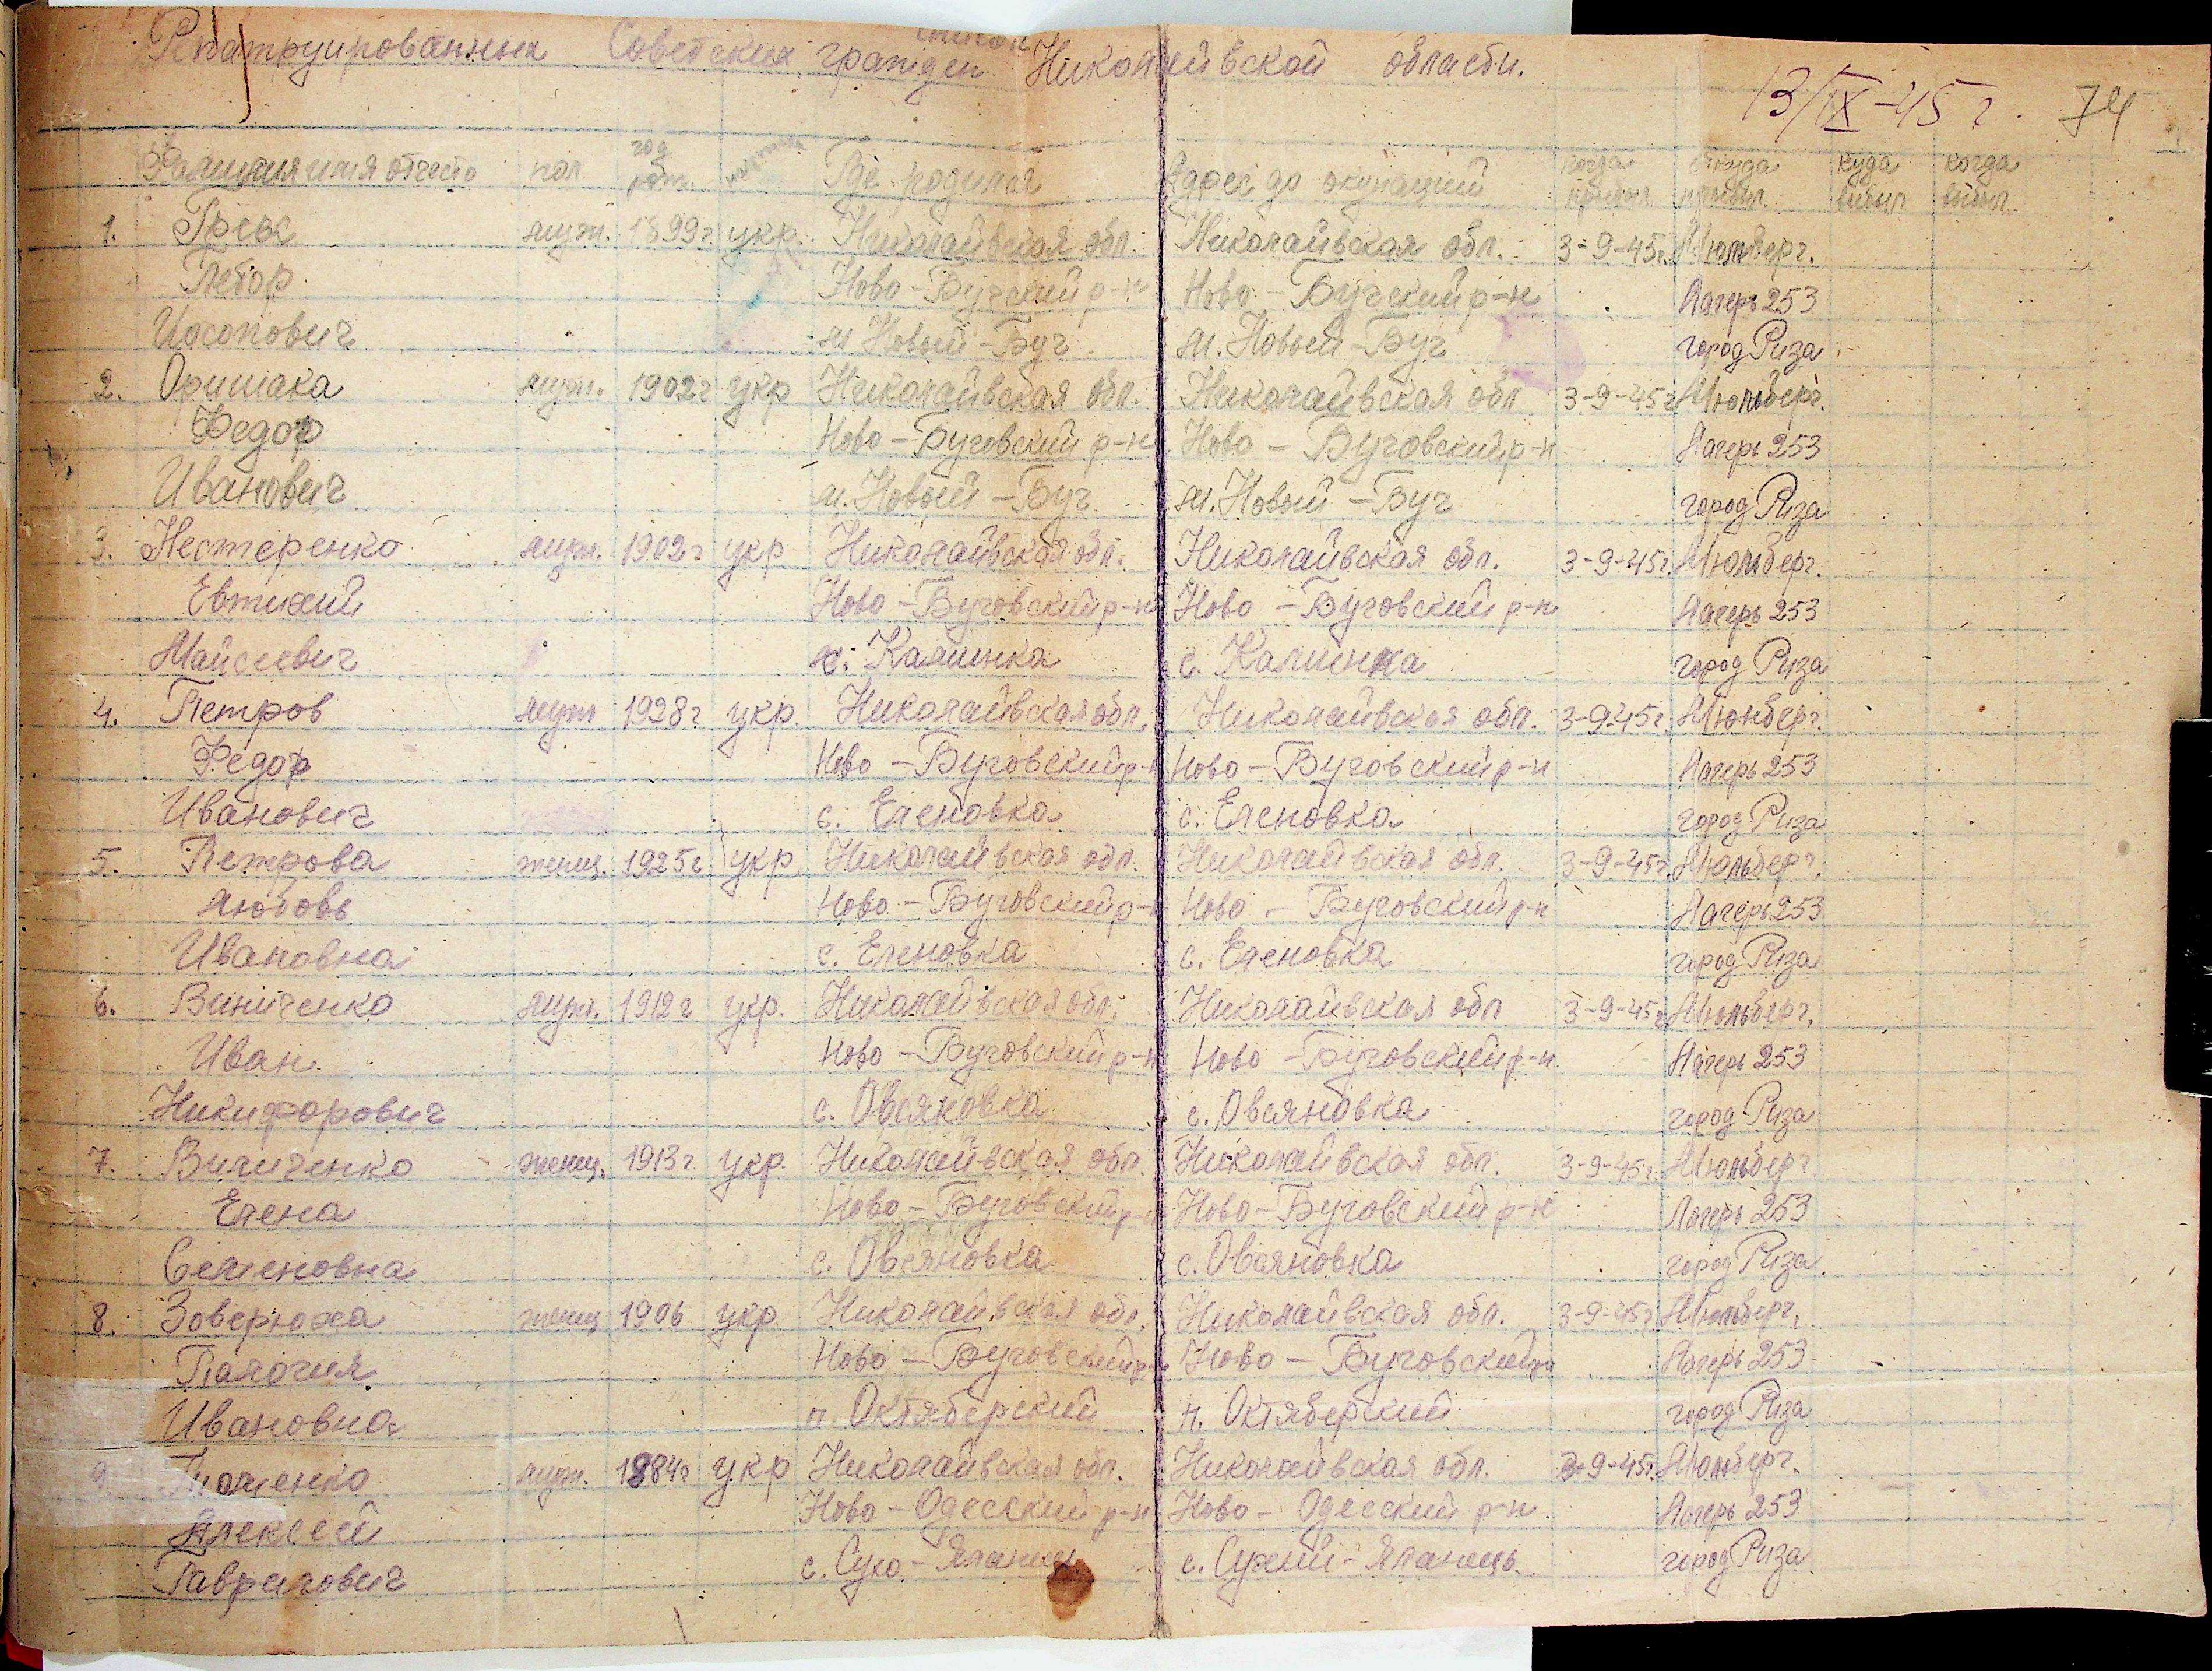 список
Репатруированных Советских граждан Николайвской области.
13/IX-45 г. 74
Фамилия имя отчество пол год рож. Где родился Адрес до окупаций когда прибыл откуда прибыл. куда выбыл когда выбыл.
1. муж. 1899г укр. Николайвская обл. Николайвская обл. 3-9-45г. Мюльберг.
Петор Ново-Бугский р-н Ново-Бугский р-н Лагерь 253
Иосопович м Новый-Буг м. Новый-Буг город Риза
2. Оришака муж. 1902г укр Николайвская обл. Николайвская обл 3-9-45г Мюльберг.
Федор Ново-Буговский р-н Ново-Буговский р-н Лагерь 253
Иванович м. Новый-Буг м. Новый-Буг город Риза
3. Нестеренко муж. 1902г укр Николайвская обл. Николайвская обл. 3-9-45г. Мюльберг.
Евтихий Ново-Буговский р-н Ново-Буговский р-н Лагерь 253
Майсеевич с. Калинка с. Калинка город Риза
4. Петров муж 1928г укр. Николайвская обл. Николайвская обл. 3-9-45г. Мюнберг.
Федор Ново-Буговский р-н Ново-Буговский р-н Лагерь 253
Иванович с. Еленовка с. Еленовка город Риза
5. Петрова женщ. 1925г укр Николайвская обл. Николайвская обл. 3-9-45г. Мюльберг.
Любовь Ново-Буговский р-н Ново-Буговский р-н Лагерь 253
Ивановна с. Еленовка с. Еленовка город Риза
6. Виниченко муж. 1912г укр. Николайвская обл. Николайвская обл 3-9-45г. Мюльберг.
Иван Ново-Буговский р-н Ново-Буговский р-н Лагерь 253
Никифорович с. Овсяновка с. Овсяновка город Риза
7. Виниченко женщ. 1913г. укр. Николайвская обл. Николайвская обл. 3-9-45г. Мюльберг
Елена Ново-Буговский р-н Ново-Буговский р-н Лагерь 253
Семеновна с. Овсяновка с. Овсяновка город Риза.
8. Зоверюха женщ 1906 укр Николайвская обл. Николайвская обл. 3-9-45г. Мюльберг.
Палагия Ново-Буговский р-н Ново-Буговский рн Лагерь 253
Ивановна п. Октяберский п. Октяберский город Риза
9. муж. 1884г укр Николайвская обл. Николайвская обл. 3-9-45г. Мюльберг.
Алексей Ново-Одесский р-н Ново-Одесский р-н. Лагерь 253
Гаврилович с. Сухо-Яланец с. Сухий-Яланець. город Риза